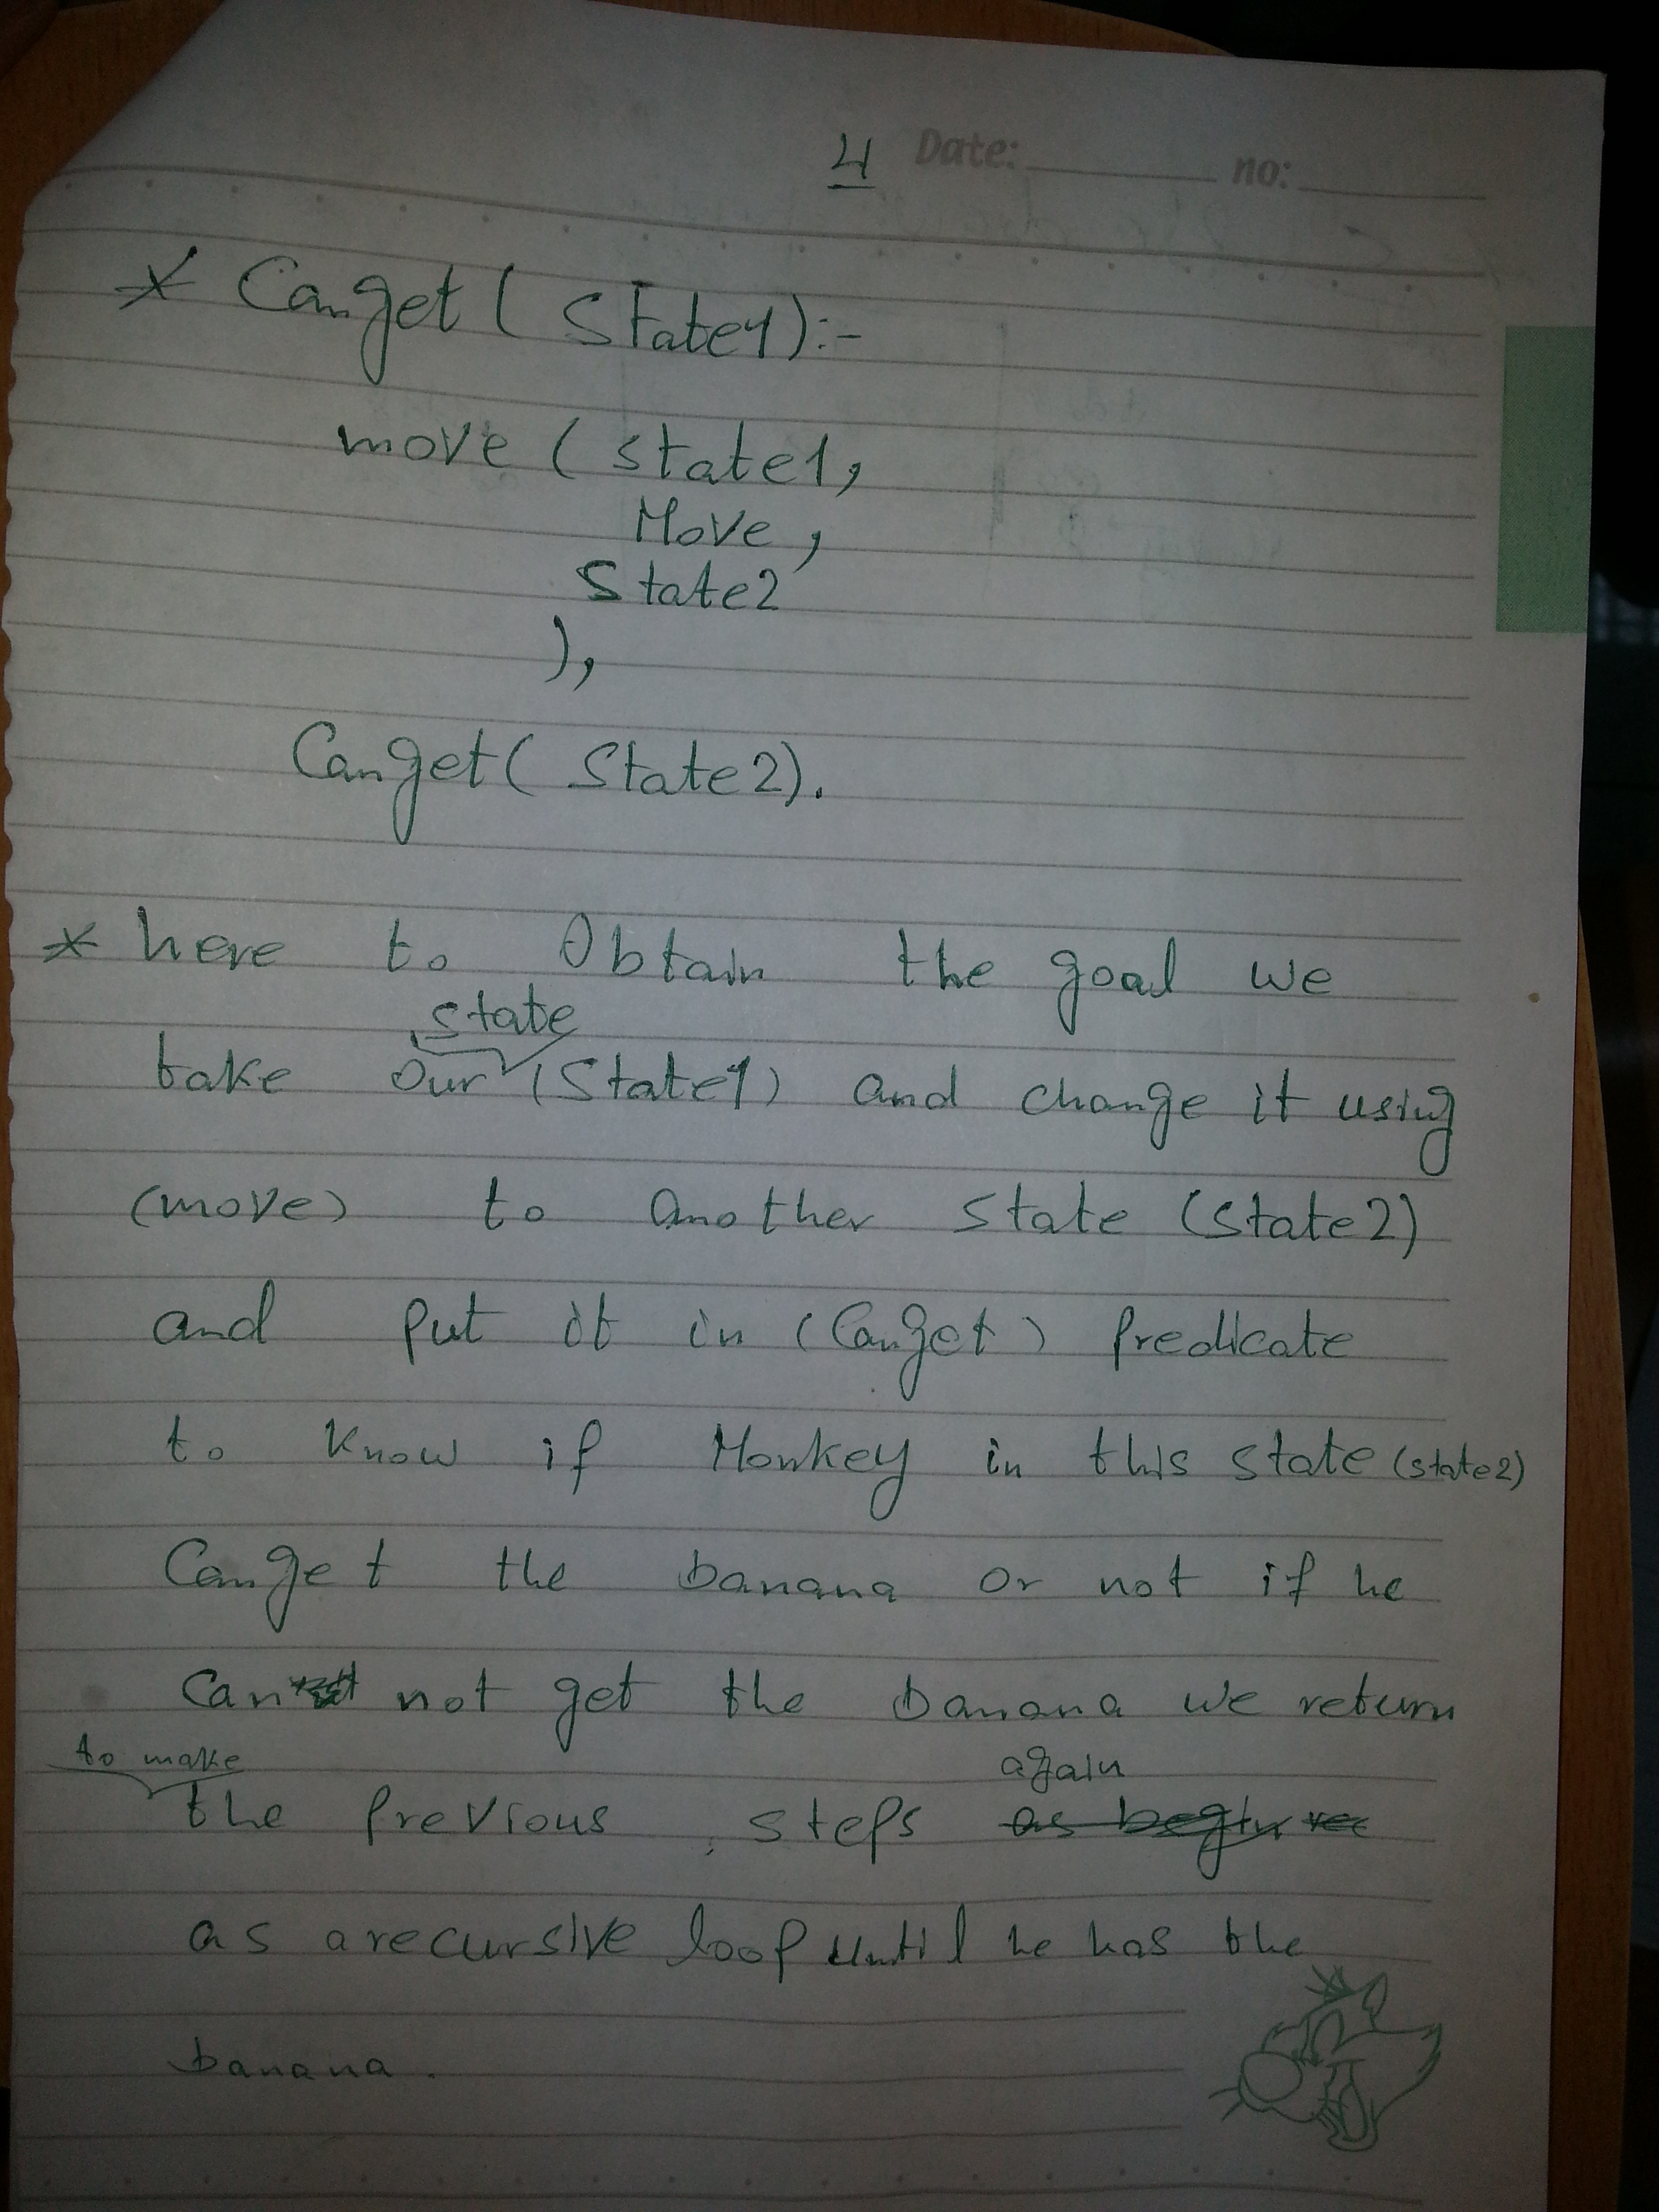 4 Date: no:
* Canget ( State1):-
move ( state1,
Move ,
State2
),
Canget( State2).
* here to Obtain the goal we
state
take our (State1) and change it using
(move) to another state (state2)
and put it in (Canget) predicate
to know if Monkey in this state (state2)
Canget the banana or not if he
Can not get the banana we return
to make again
the previous steps as begin
as a recursive loop until he has the
banana.